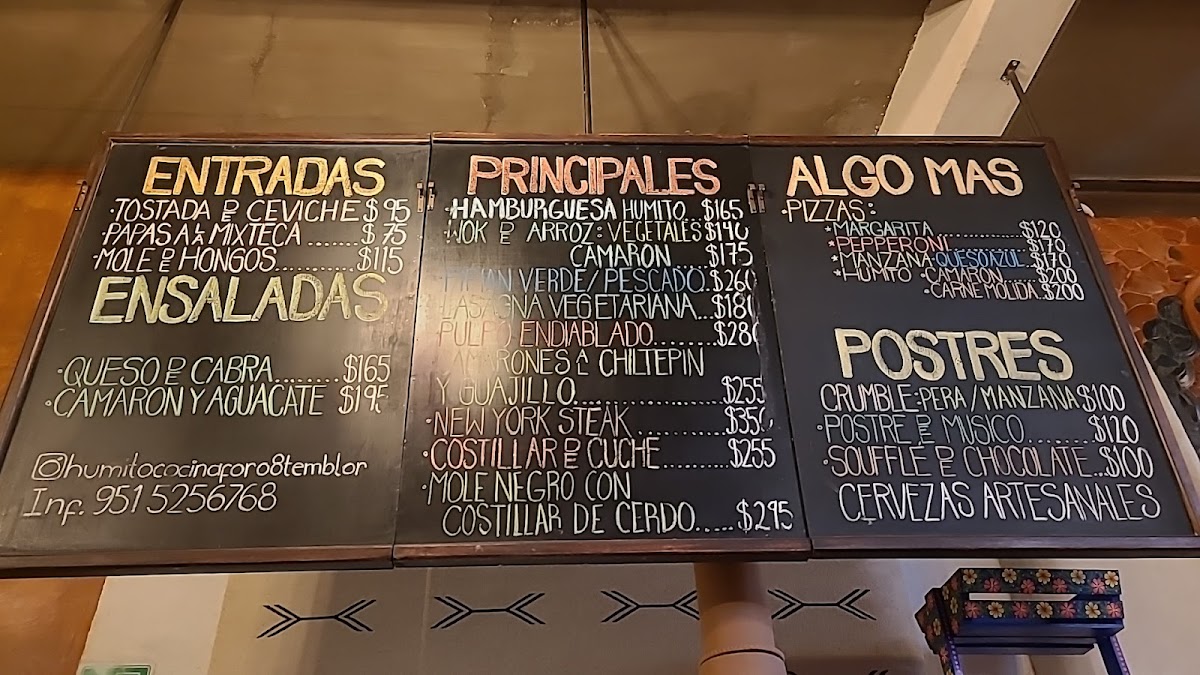 ENTRADAS
·TOSTADA DE CEVICHE $95
·PAPAS A LA MIXTECA....... $75
·MOLE DE HONGOS..........$115
ENSALADAS
·QUESO DE CABRA........$165
·CAMARON Y AGUACATE $195
humitococinaforo8temblor
Inf. 951 5256768
PRINCIPALES
·HAMBURGUESA HUMITO..$165
·WOK DE ARROZ: VEGETALES $140
CAMARON $175
·PIPIAN VERDE/PESCADO..$260
·LASAGNA VEGETARIANA...$180
·PULPO ENDIABLADO.......$280
·CAMARONES A CHILTEPIN
Y GUAJILLO...............$255
·NEW YORK STEAK..........$350
·COSTILLAR DE CUCHE.......$255
·MOLE NEGRO CON
COSTILLAR DE CERDO.....$295
ALGO MAS
·PIZZAS:
*MARGARITA..........$120
*PEPPERONI..........$170
*MANZANA-QUESO AZUL..$170
*HUMITO ·CAMARON......$200
·CARNE MOLIDA.$200
POSTRES
CRUMBLE:PERA/MANZANA $100
·POSTRE DE MUSICO........$120
·SOUFFLE DE CHOCOLATE..$100
CERVEZAS ARTESANALES